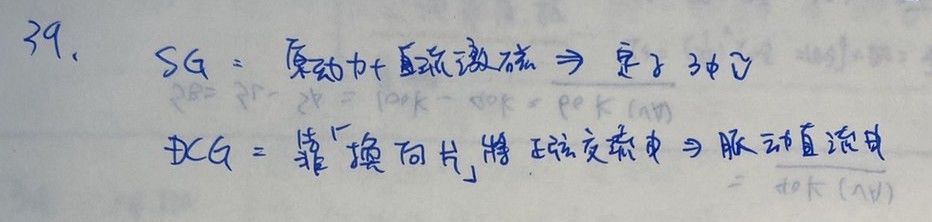 39. SG = 原動力+直流激磁 ⇒ 定子 3ϕ
DCG = 靠「換向片」將正弦交流电 ⇒ 脈动直流电